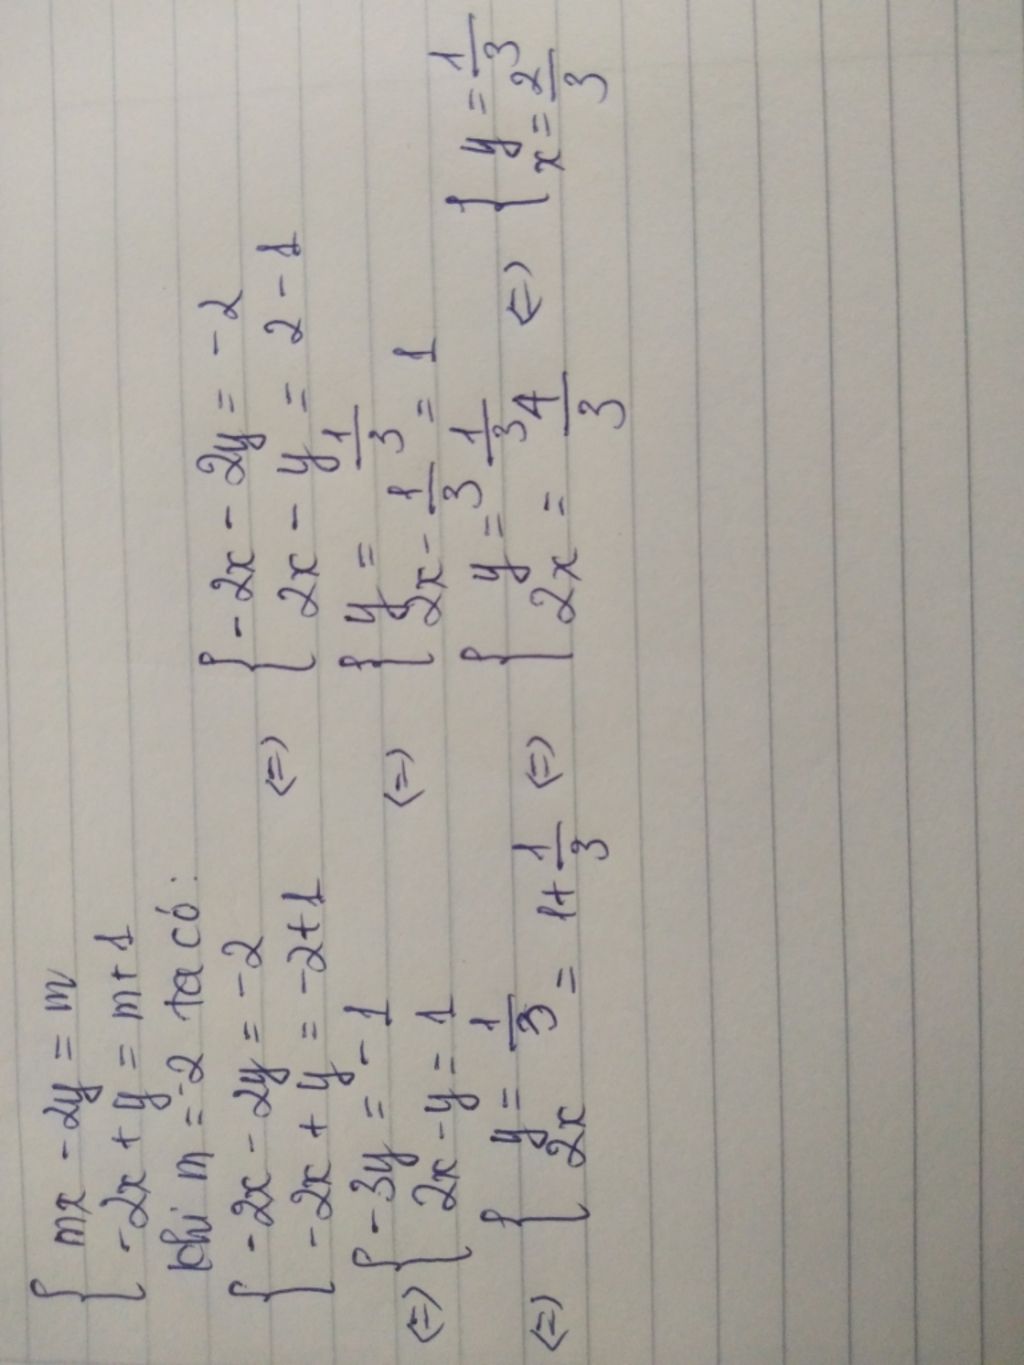 { mx - 2y = m
-2x + y = m + 1
Khi m = -2 ta có:
{ -2x - 2y = -2
-2x + y = -2+1
<=> { -2x - 2y = -2
2x - y = 2 - 1
<=> { -3y = -1
2x - y = 1
<=> { y = 1/3
2x - 1/3 = 1
<=> { y = 1/3
2x = 1 + 1/3
<=> { y = 1/3
2x = 4/3
<=> { y = 1/3
x = 2/3